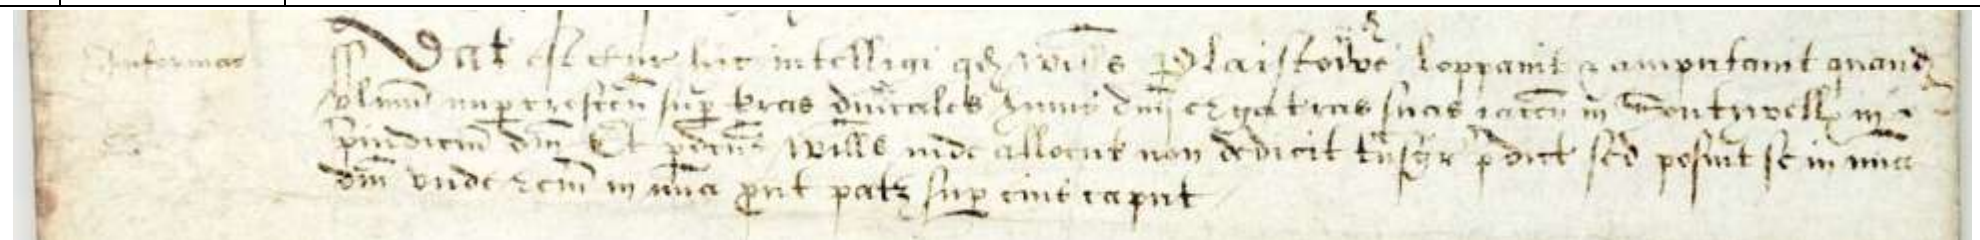 Informac
Dat est cur hic intelligi qd Wills Plaistowe loppavit & amputavit quand
ulmu nup crescen sup tras dnicales huius dni erga tras suas iacen in Southwell in
piudiciu dni Et pdcus Wills inde allocut non dedicit tnsgr pdict sed posuit se in mia
dni unde rem in mia put patz sup eius caput